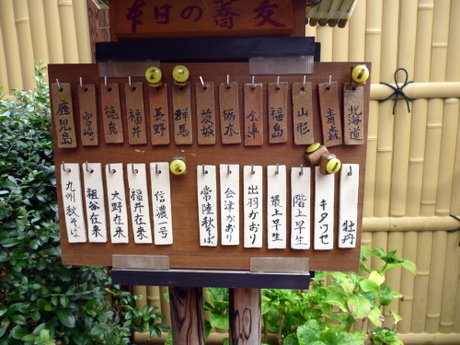 本日の蕎麦
北海道
青森
山形
福島
会津
栃木
茨城
群馬
長野
福井
徳島
宮崎
鹿児島
牡丹
キタワセ
階上早生
最上早生
出羽かおり
会津かおり
常陸秋そば
信濃一号
福井在来
大野在来
祖谷在来
九州秋そば